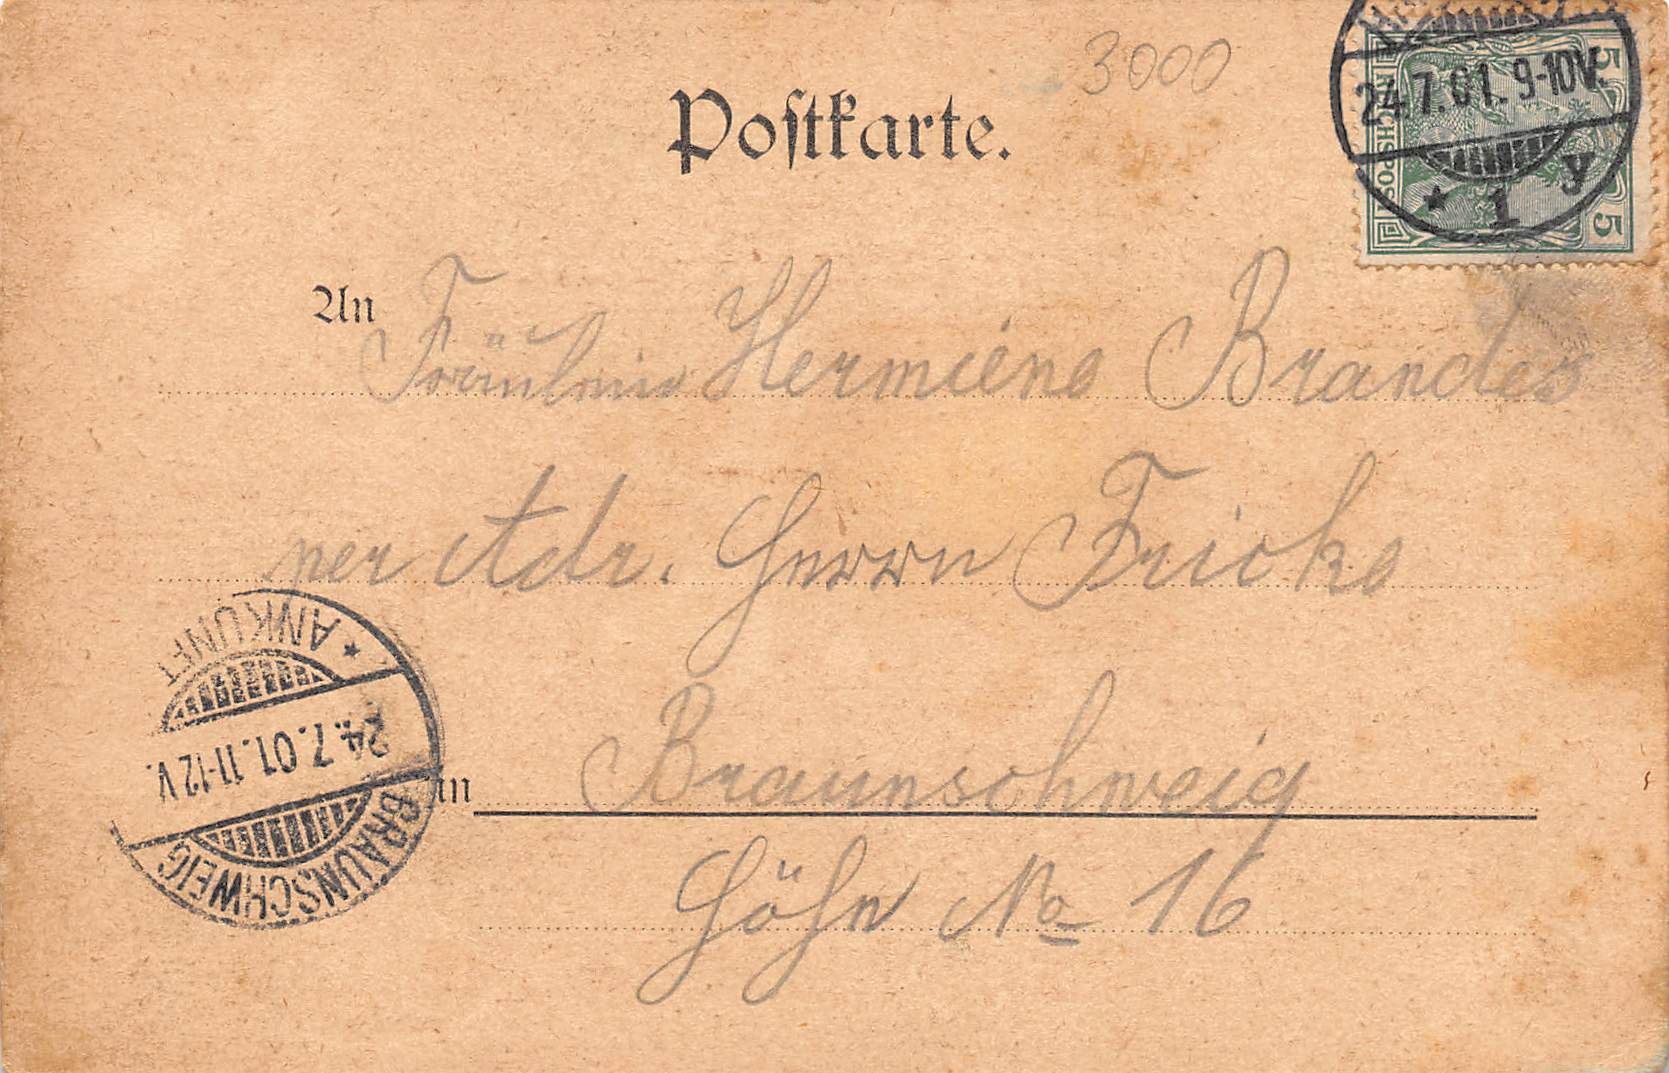 3000
Postkarte.
24.7.01. 9-10V.
* 1 y
5
5
An Fräulein Hermiene Brandes
per Adr. Herrn Fricke
* ANKUNFT
24.7.01.11-12V.
BRAUNSCHWEIG
in Braunschweig
Höhe No 16